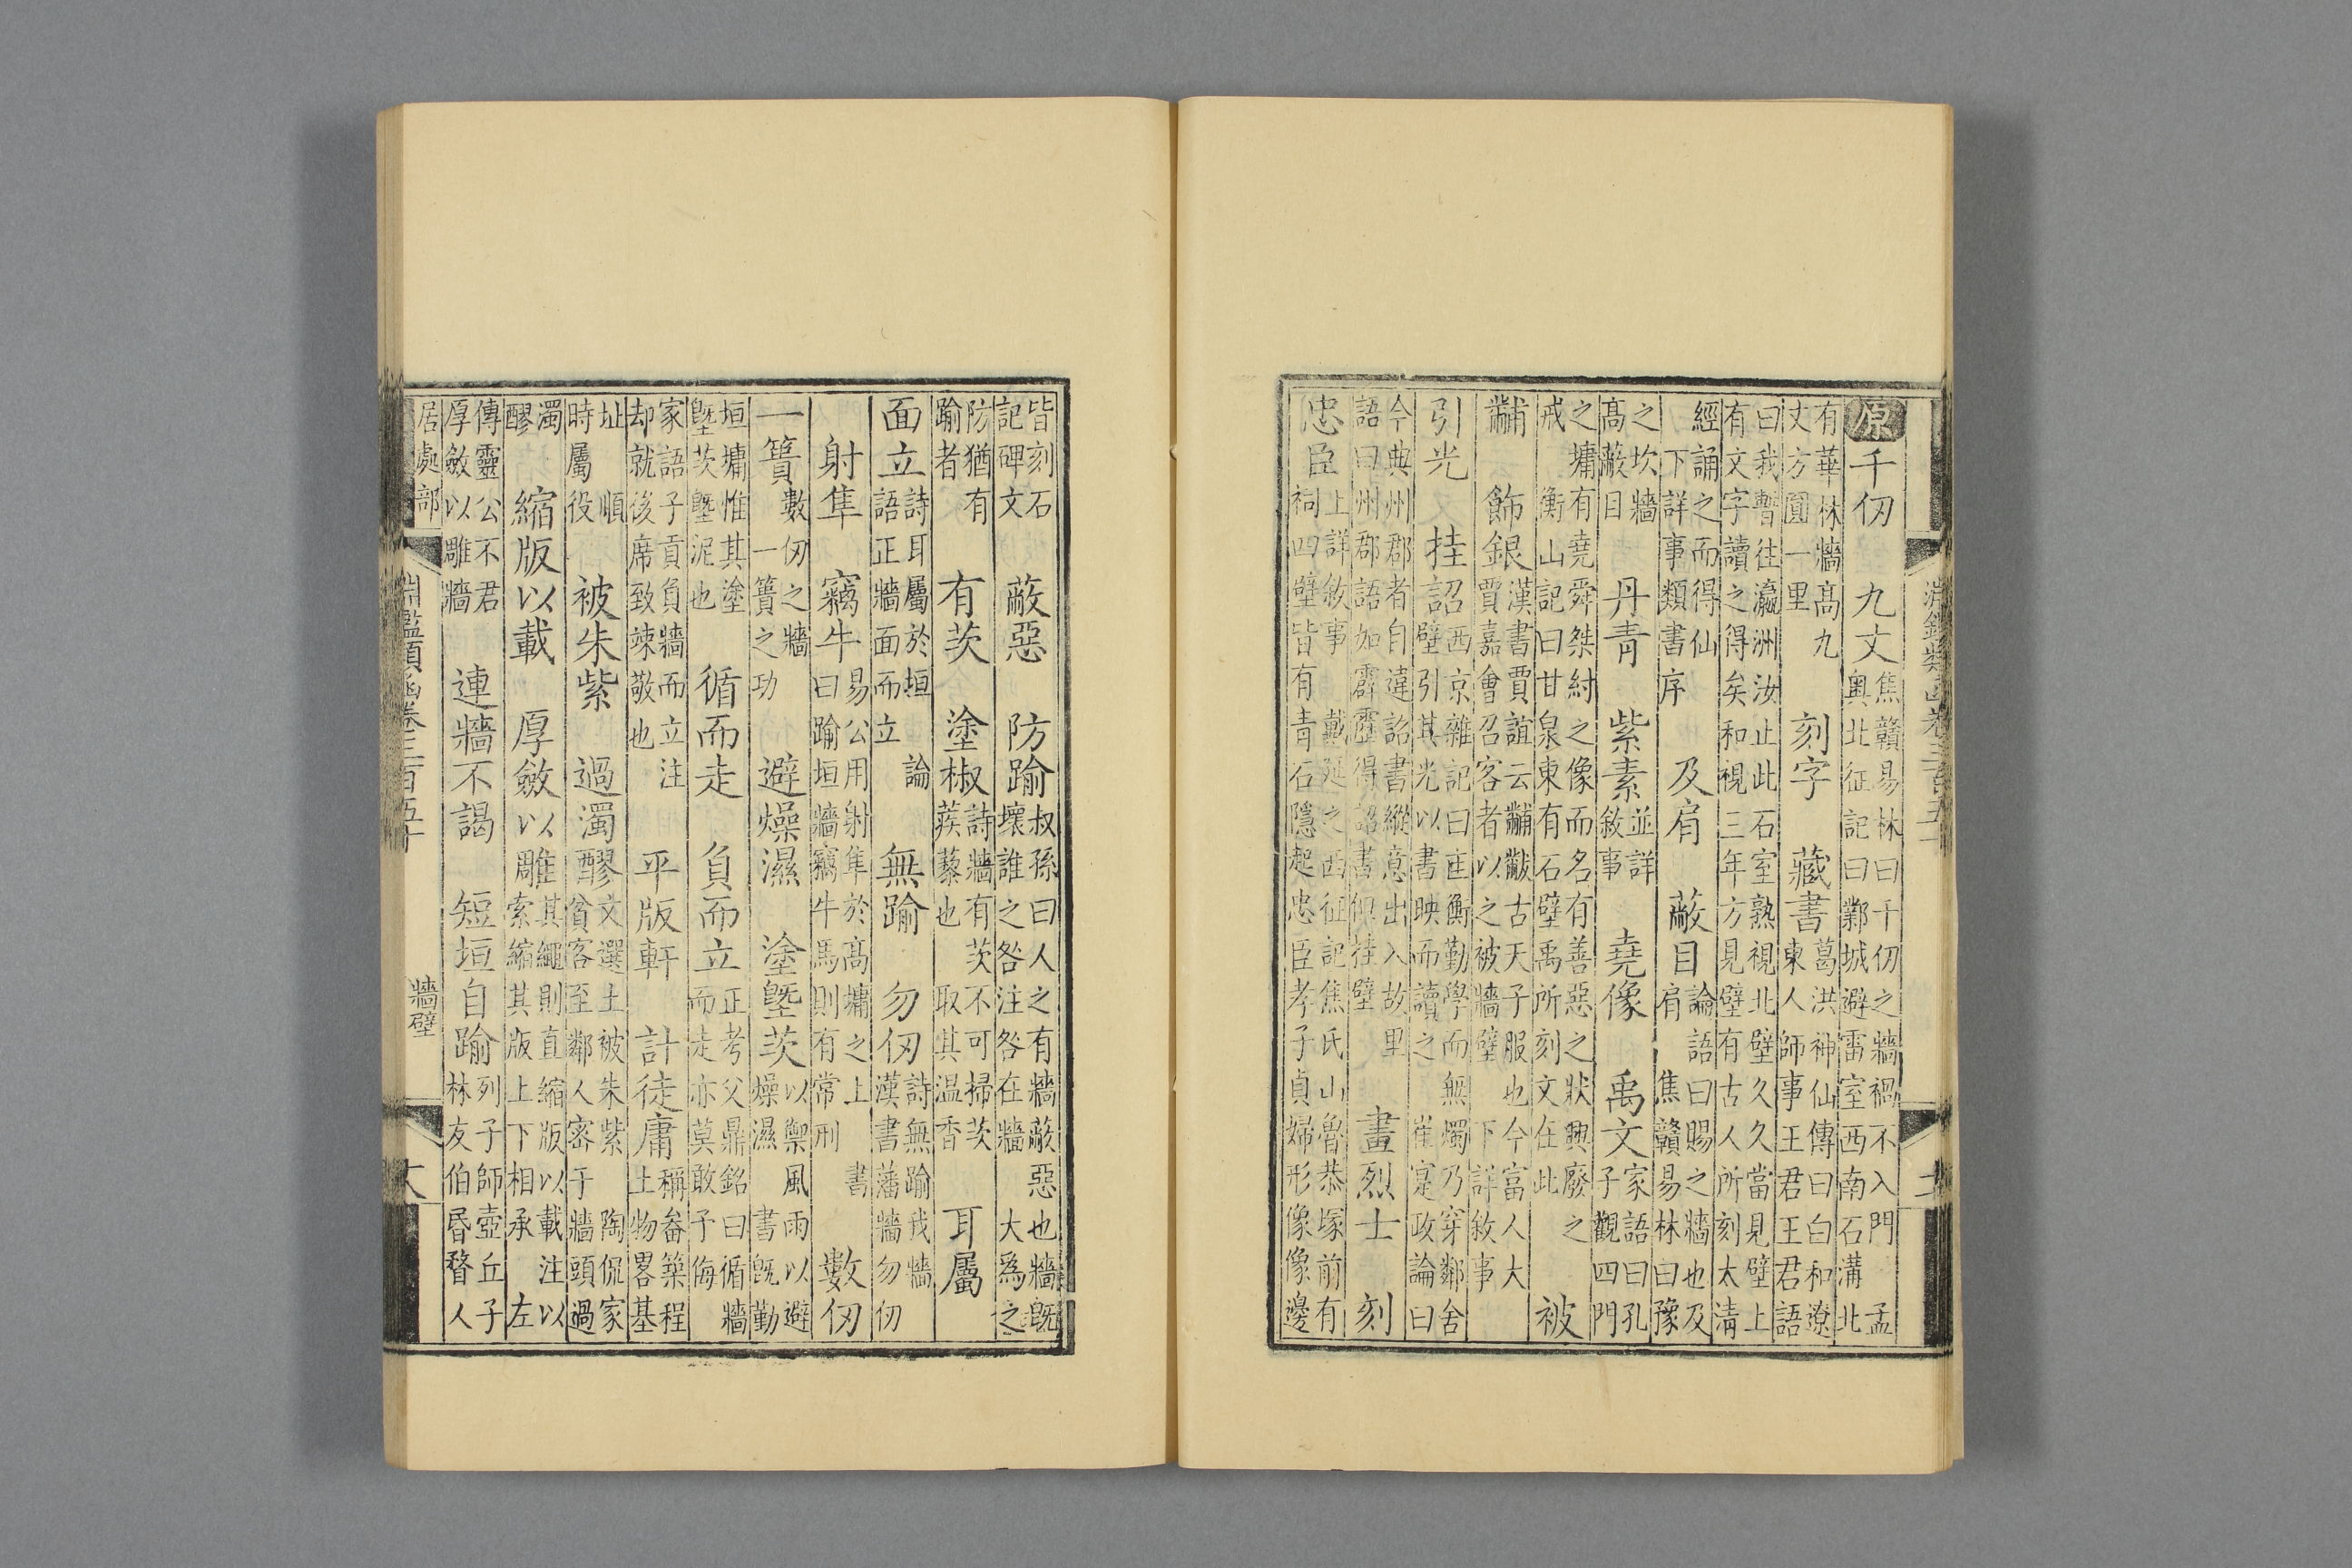 淵鑑類函卷三百五十
原千仞 九丈 焦贛易林曰千仞之牆禍不入門 孟奧北征記曰鄴城避雷室西南石溝北
有華林牆高九丈方圓一里 刻字 藏書 葛洪神仙傳曰白和遼東人師事王君王君語
曰我暫往瀛洲汝止此石室熟視北壁久久當見壁上有文字讀之得矣和視三年方見壁有古人所刻太清
經誦之而得仙下詳事類書序 及肩 蔽目 論語曰賜之牆也及肩 焦贛易林曰豫
之坎牆高蔽目 丹青 紫素 並詳敘事 堯像 禹文 家語曰孔子觀四門
之墉有堯舜桀紂之像而名有善惡之狀興廢之戒 衡山記曰甘泉東有石壁禹所刻文在此 被
黼 飾銀 漢書賈誼云黼黻古天子服也今富人大賈嘉會召客者以之被牆壁 下詳敘事
引光 挂詔 西京雜記曰匡衡勤學而無燭乃穿鄰舍壁引其光以書映而讀之 崔寔政論曰
今典州郡者自違詔書縱意出入故里語曰州郡語如霹靂得詔書但挂壁 畫烈士 刻
忠臣 上詳敘事 戴延之西征記焦氏山魯恭塚前有祠四壁皆有青石隱起忠臣孝子貞婦形像像邊
皆刻石記碑文 蔽惡 防踰 叔孫曰人之有牆蔽惡也牆既壞誰之咎注咎在牆 大爲之
防猶有踰者 有茨 塗椒 詩牆有茨不可掃茨蒺藜也 取其温香 耳屬
面立 詩耳屬於垣 論語正牆面而立 無踰 勿仞 詩無踰我牆漢書藩牆勿仞
射隼 竊牛 易公用射隼於高墉之上 書曰踰垣牆竊牛馬則有常刑 數仞
一簣 數仞之牆一簣之功 避燥濕 塗墍茨 以禦風雨以避燥濕 書既勤
垣墉惟其塗墍茨墍泥也 循而走 負而立 正考父鼎銘曰循牆而走亦莫敢予侮
家語子貢負牆而立注却就後席致竦敬也 平版軒 計徒庸 稱畚築程土物畧基
址 順時屬役 被朱紫 過濁醪 文選土被朱紫 陶侃家貧客至鄰人密于牆頭過
濁醪 縮版以載 厚斂以雕 其繩則直縮版以載注以索縮其版上下相承 左
傳靈公不君厚斂以雕牆 連牆不謁 短垣自踰 列子師壺丘子林友伯昬瞀人
居處部 淵鑑類函卷三百五十 牆壁